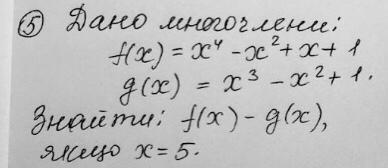 ⑤ Дано многочлени:
f(x) = x⁴ - x² + x + 1
g(x) = x³ - x² + 1.
Знайти: f(x) - g(x),
якщо x = 5.